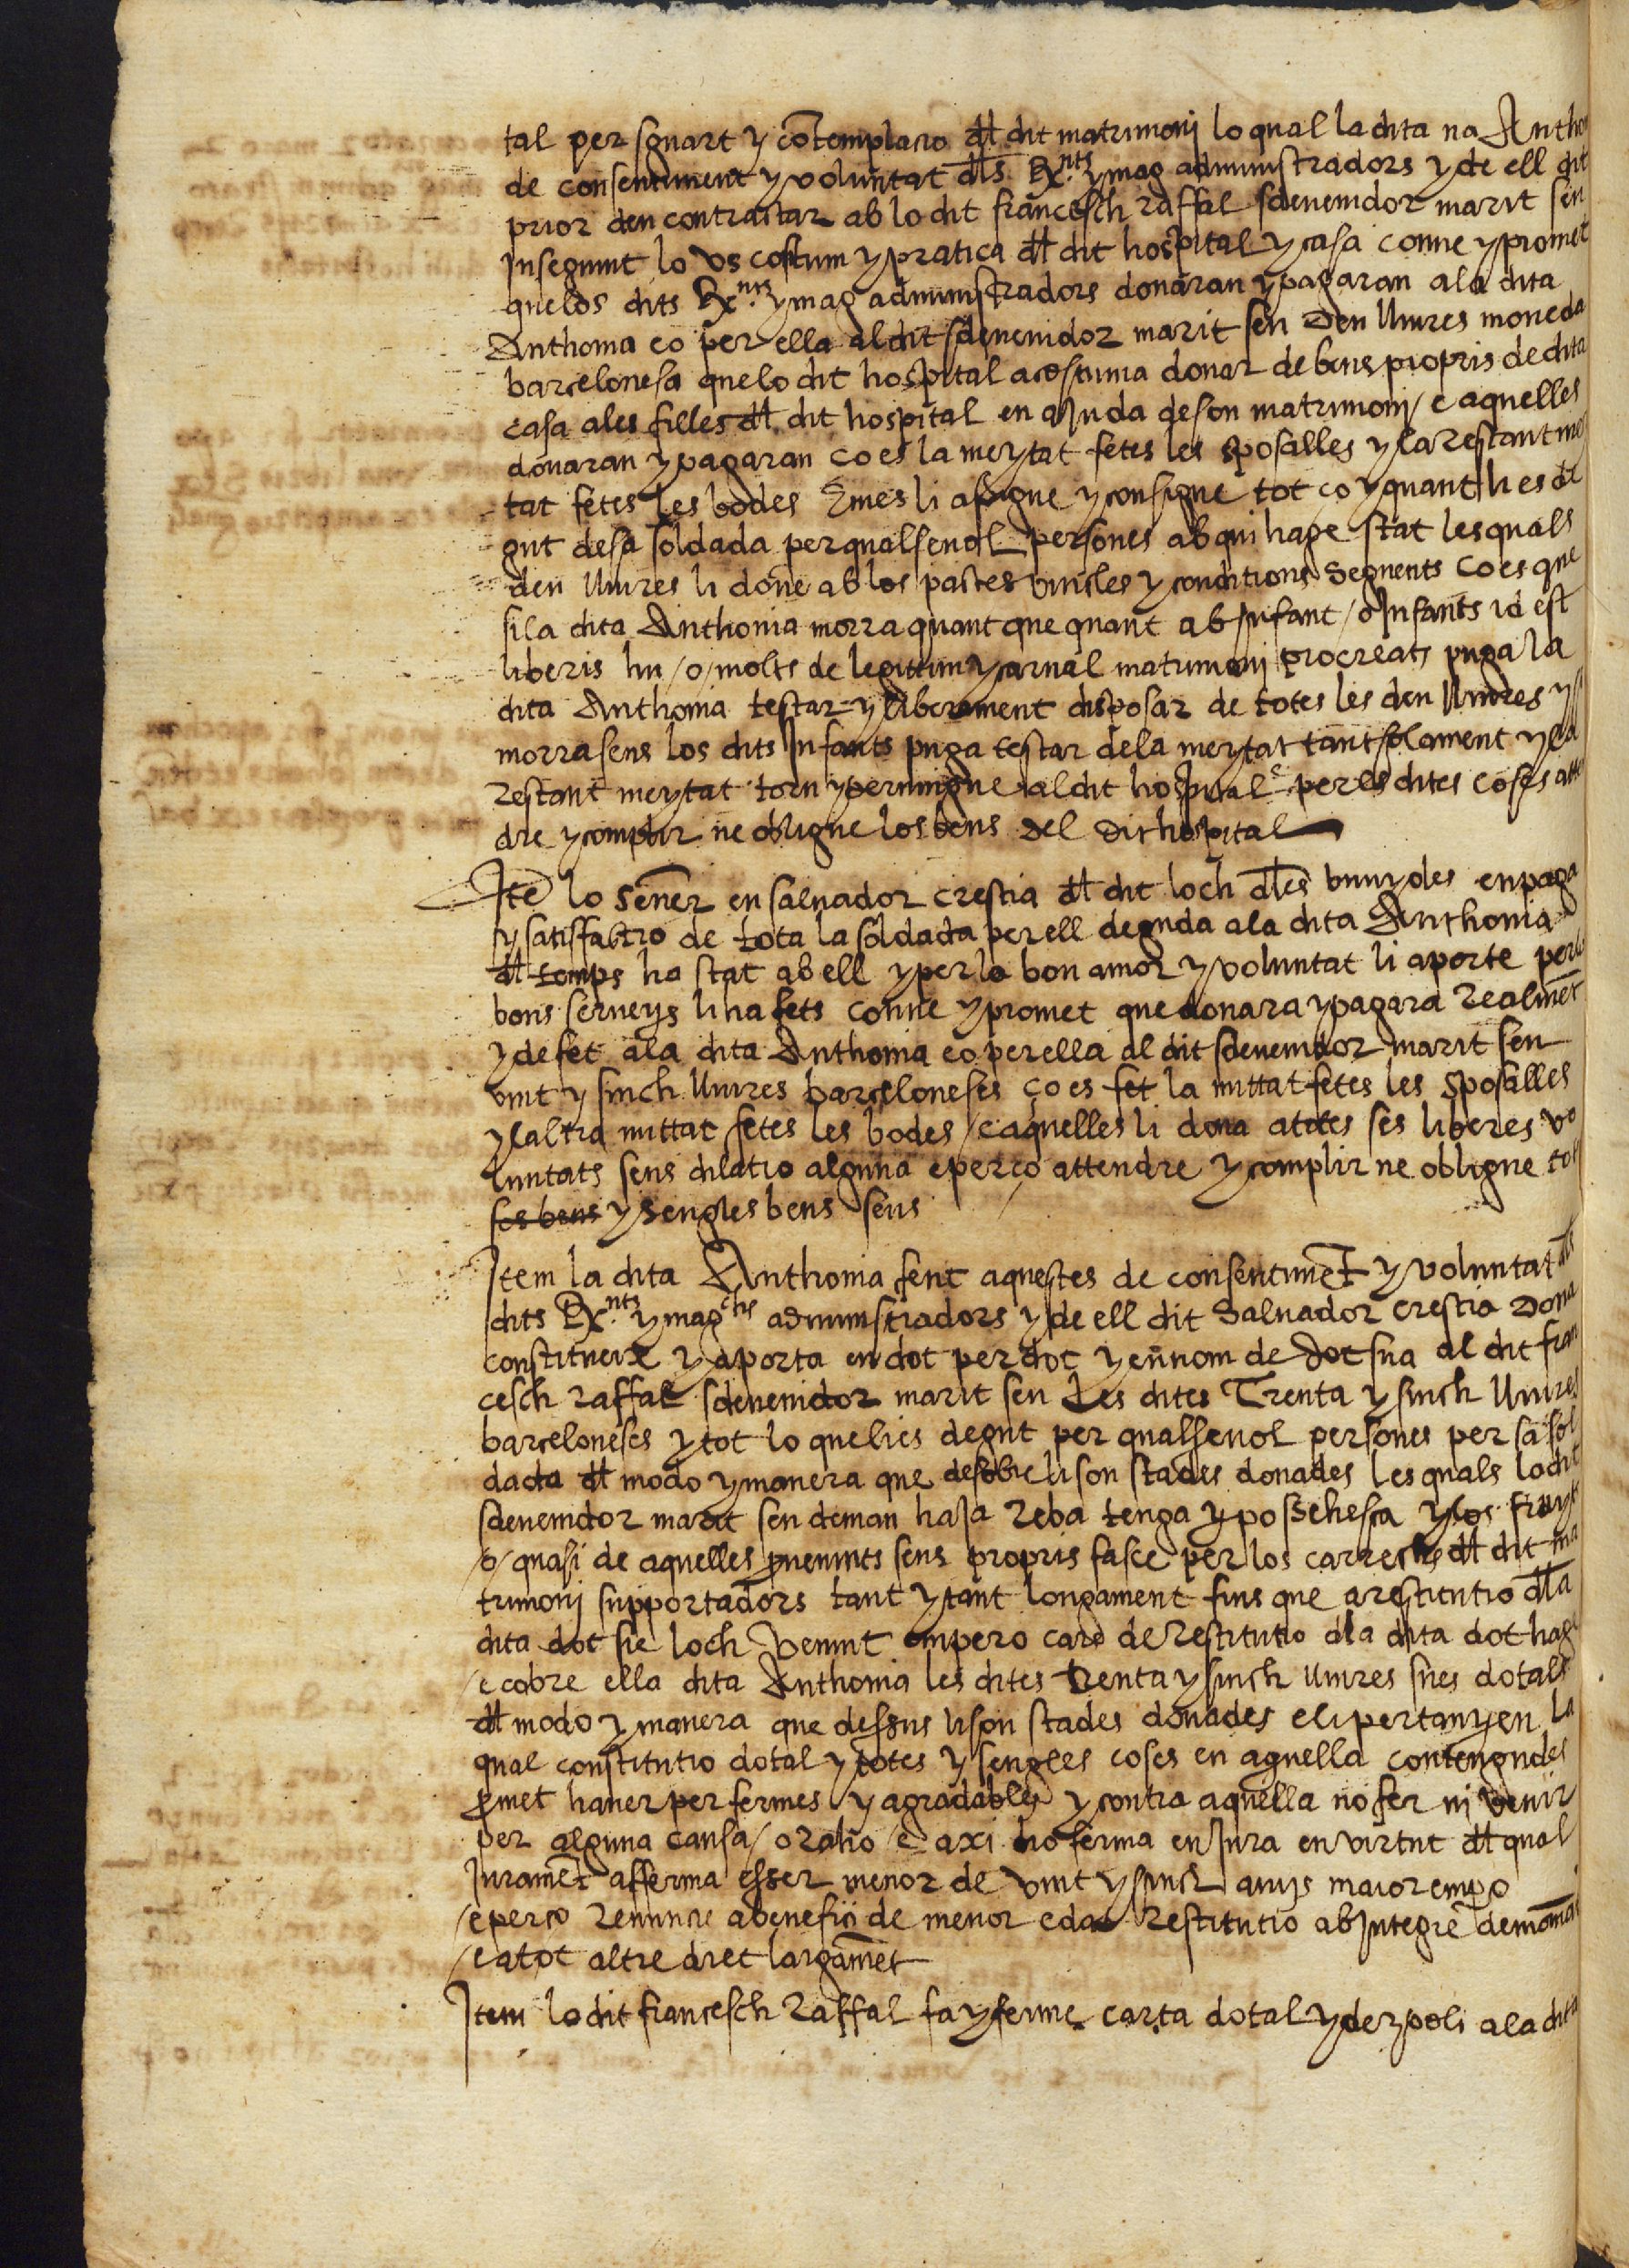 tal per sguart y cōtemplacio dl dit matrimonj lo qual la dita na Antho
de consentiment y voluntat dls Rx.nts y mag administradors y de ell dit
prior den contractar ab lo dit francesch raffal sdevenidor marit seu
Inseguint lo vs costum y pratica dl dit hospital y casa conve y promet
que los dits Rx.nts y mag administradors donaran y pagaran ala dita
Anthonia eo per ella al dit sdevenidor marit seu Deu lliures moneda
barcelonesa que lo dit hospital acostuma donar de bens propris de dita
casa ales filles dl dit hospital en aJuda de son matrimonj / e aquelles
donaran y pagaran ço es la meytat fetes les sposalles y la restant mey
tat fetes les bodes E mes li assigne y consigne tot ço y quant li es de
gut de sa soldada per qualsevol persones ab qui hage stat les quals
deu lliures li done ab los pactes vincles y conditions seguents ço es que
si la dita Anthonia morra quant que quant ab Infant / o Infants id est
liberis hu / o / molts de legittim y carnal matrimonj procreats puga la
dita Anthonia testar y liberament disposar de totes les deu lliures y si
morra sens los dits Infants puga testar de la meytat tant solament y la
restant meytat torn y pervingue al dit hospital e per les dites coses atte
dre y complir ne obligue los bens del dit hospital
Itē lo sēner en salvador crestia dl dit loch dles vunyoles en paga
y satisfactio de tota la soldada per ell deguda ala dita Anthonia
dl temps ha stat ab ell y per lo bon amor y voluntat li aporte per lo
bons serveys li ha fets conve y promet que donara y pagara realmēt
y de fet ala dita Anthonia eo per ella al dit sdevenidor marit seu
vint y sinch lliures barceloneses ço es fet la mittat fetes les sposalles
y laltra mittat fetes les bodes / e aquelles li dona atotes ses liberes vo
luntats sens dilatio alguna e perço attendre y complir ne obligue tot
ses bens y sengles bens seus
Item la dita Anthonia fent aquestes de consentimēt y voluntat dls
dits Rx.nts y magchs administradors y de ell dit Salvador crestia Dona
constitueix y aporta en dot per dot y en nom de dot sua al dit fran
cesch raffal sdevenidor marit seu Les dites Trenta y sinch lliures
barceloneses y tot lo que li es degut per qualsevol persones per sa sol
dada dl modo y manera que desobre li son stades donades les quals lo dit
sdevenidor marit seu deman haJa reba tenga y possehesca y los fruyts
/ o / quasi de aquelles pvenints seus propris fasce per los carrechs dl dit ma
trimonj supportadors tant y tant longament fins que a restitutio dla
dita dot sie loch venint empero cars de restitutio dla dita dot hage
/ e cobre ella dita Anthonia les dites trenta y sinch lliures sues dotals
dl modo y manera que dessus li son stades donades e li pertanyen la
qual constitutio dotal y totes y sengles coses en aquella contengudes
pmet haver per fermes y agradables y contra aquella no fer nj venir
per alguna causa / o rahō / e axi ho ferma en Jura en virtut dl qual
Juramēt afferma esser menor de vint y sinch anys maior empo
/ e perço renuncie a benefici de menor edat restitutio ab Integrē demāna
/ e atot altre dret largamēt
Item lo dit francesch raffal fa y ferme carta dotal y de spoli ala dita